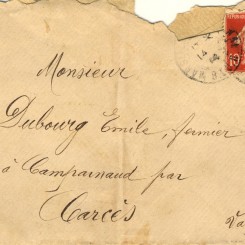 Monsieur
Dubourg Emile, fermier
à Camparnaud par
Carcès
Va
10